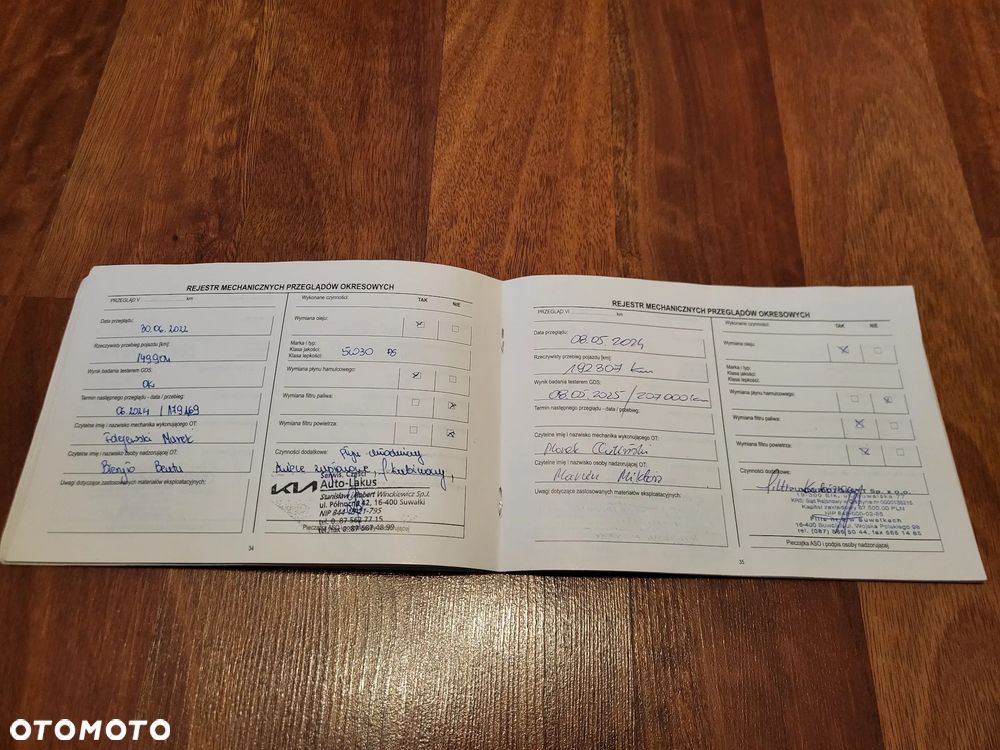 REJESTR MECHANICZNYCH PRZEGLĄDÓW OKRESOWYCH
PRZEGLĄD V km
Data przeglądu:
30.06.2022
Rzeczywisty przebieg pojazdu [km]:
149904
Wynik badania testerem GDS:
Ok
Termin następnego przeglądu - data / przebieg:
06.2024 / 179469
Czytelne imię i nazwisko mechanika wykonującego OT:
Marek
Czytelne imię i nazwisko osoby nadzorującej OT:
Beata
Uwagi dotyczące zastosowanych materiałów eksploatacyjnych:
34
Wykonane czynności: TAK NIE
Wymiana oleju:
Marka i typ:
Klasa jakości:
Klasa lepkości:
5W30
Wymiana płynu hamulcowego:
Wymiana filtru paliwa:
Wymiana filtru powietrza:
Czynności dodatkowe:
f. kabinowy,
Serwis, Części
KIA Auto-Lakus
Stanisław i Robert Winckiewicz Sp.J.
ul. Północna 42, 16-400 Suwałki
tel. 0 87 567 77 15
tel./fax 0 87 567 48 99
Pieczątka ASO
REJESTR MECHANICZNYCH PRZEGLĄDÓW OKRESOWYCH
PRZEGLĄD VI km
Data przeglądu:
08.05.2024
Rzeczywisty przebieg pojazdu [km]:
192307 km
Wynik badania testerem GDS:
08.05.2025 / 207000 km
Termin następnego przeglądu - data / przebieg:
Czytelne imię i nazwisko mechanika wykonującego OT:
Marek
Czytelne imię i nazwisko osoby nadzorującej OT:
Marcin
Uwagi dotyczące zastosowanych materiałów eksploatacyjnych:
35
Wykonane czynności: TAK NIE
Wymiana oleju:
Marka i typ:
Klasa jakości:
Klasa lepkości:
Wymiana płynu hamulcowego:
Wymiana filtru paliwa:
Wymiana filtru powietrza:
Czynności dodatkowe:
Sp. z o.o.
Kapitał zakładowy 67 500,00 PLN
Filia nr w Suwałkach
16-400 Suwałki, ul. Wojska Polskiego 98
tel. (087) 566 50 44, fax 566 14 85
Pieczątka ASO i podpis osoby nadzorującej
OTOMOTO